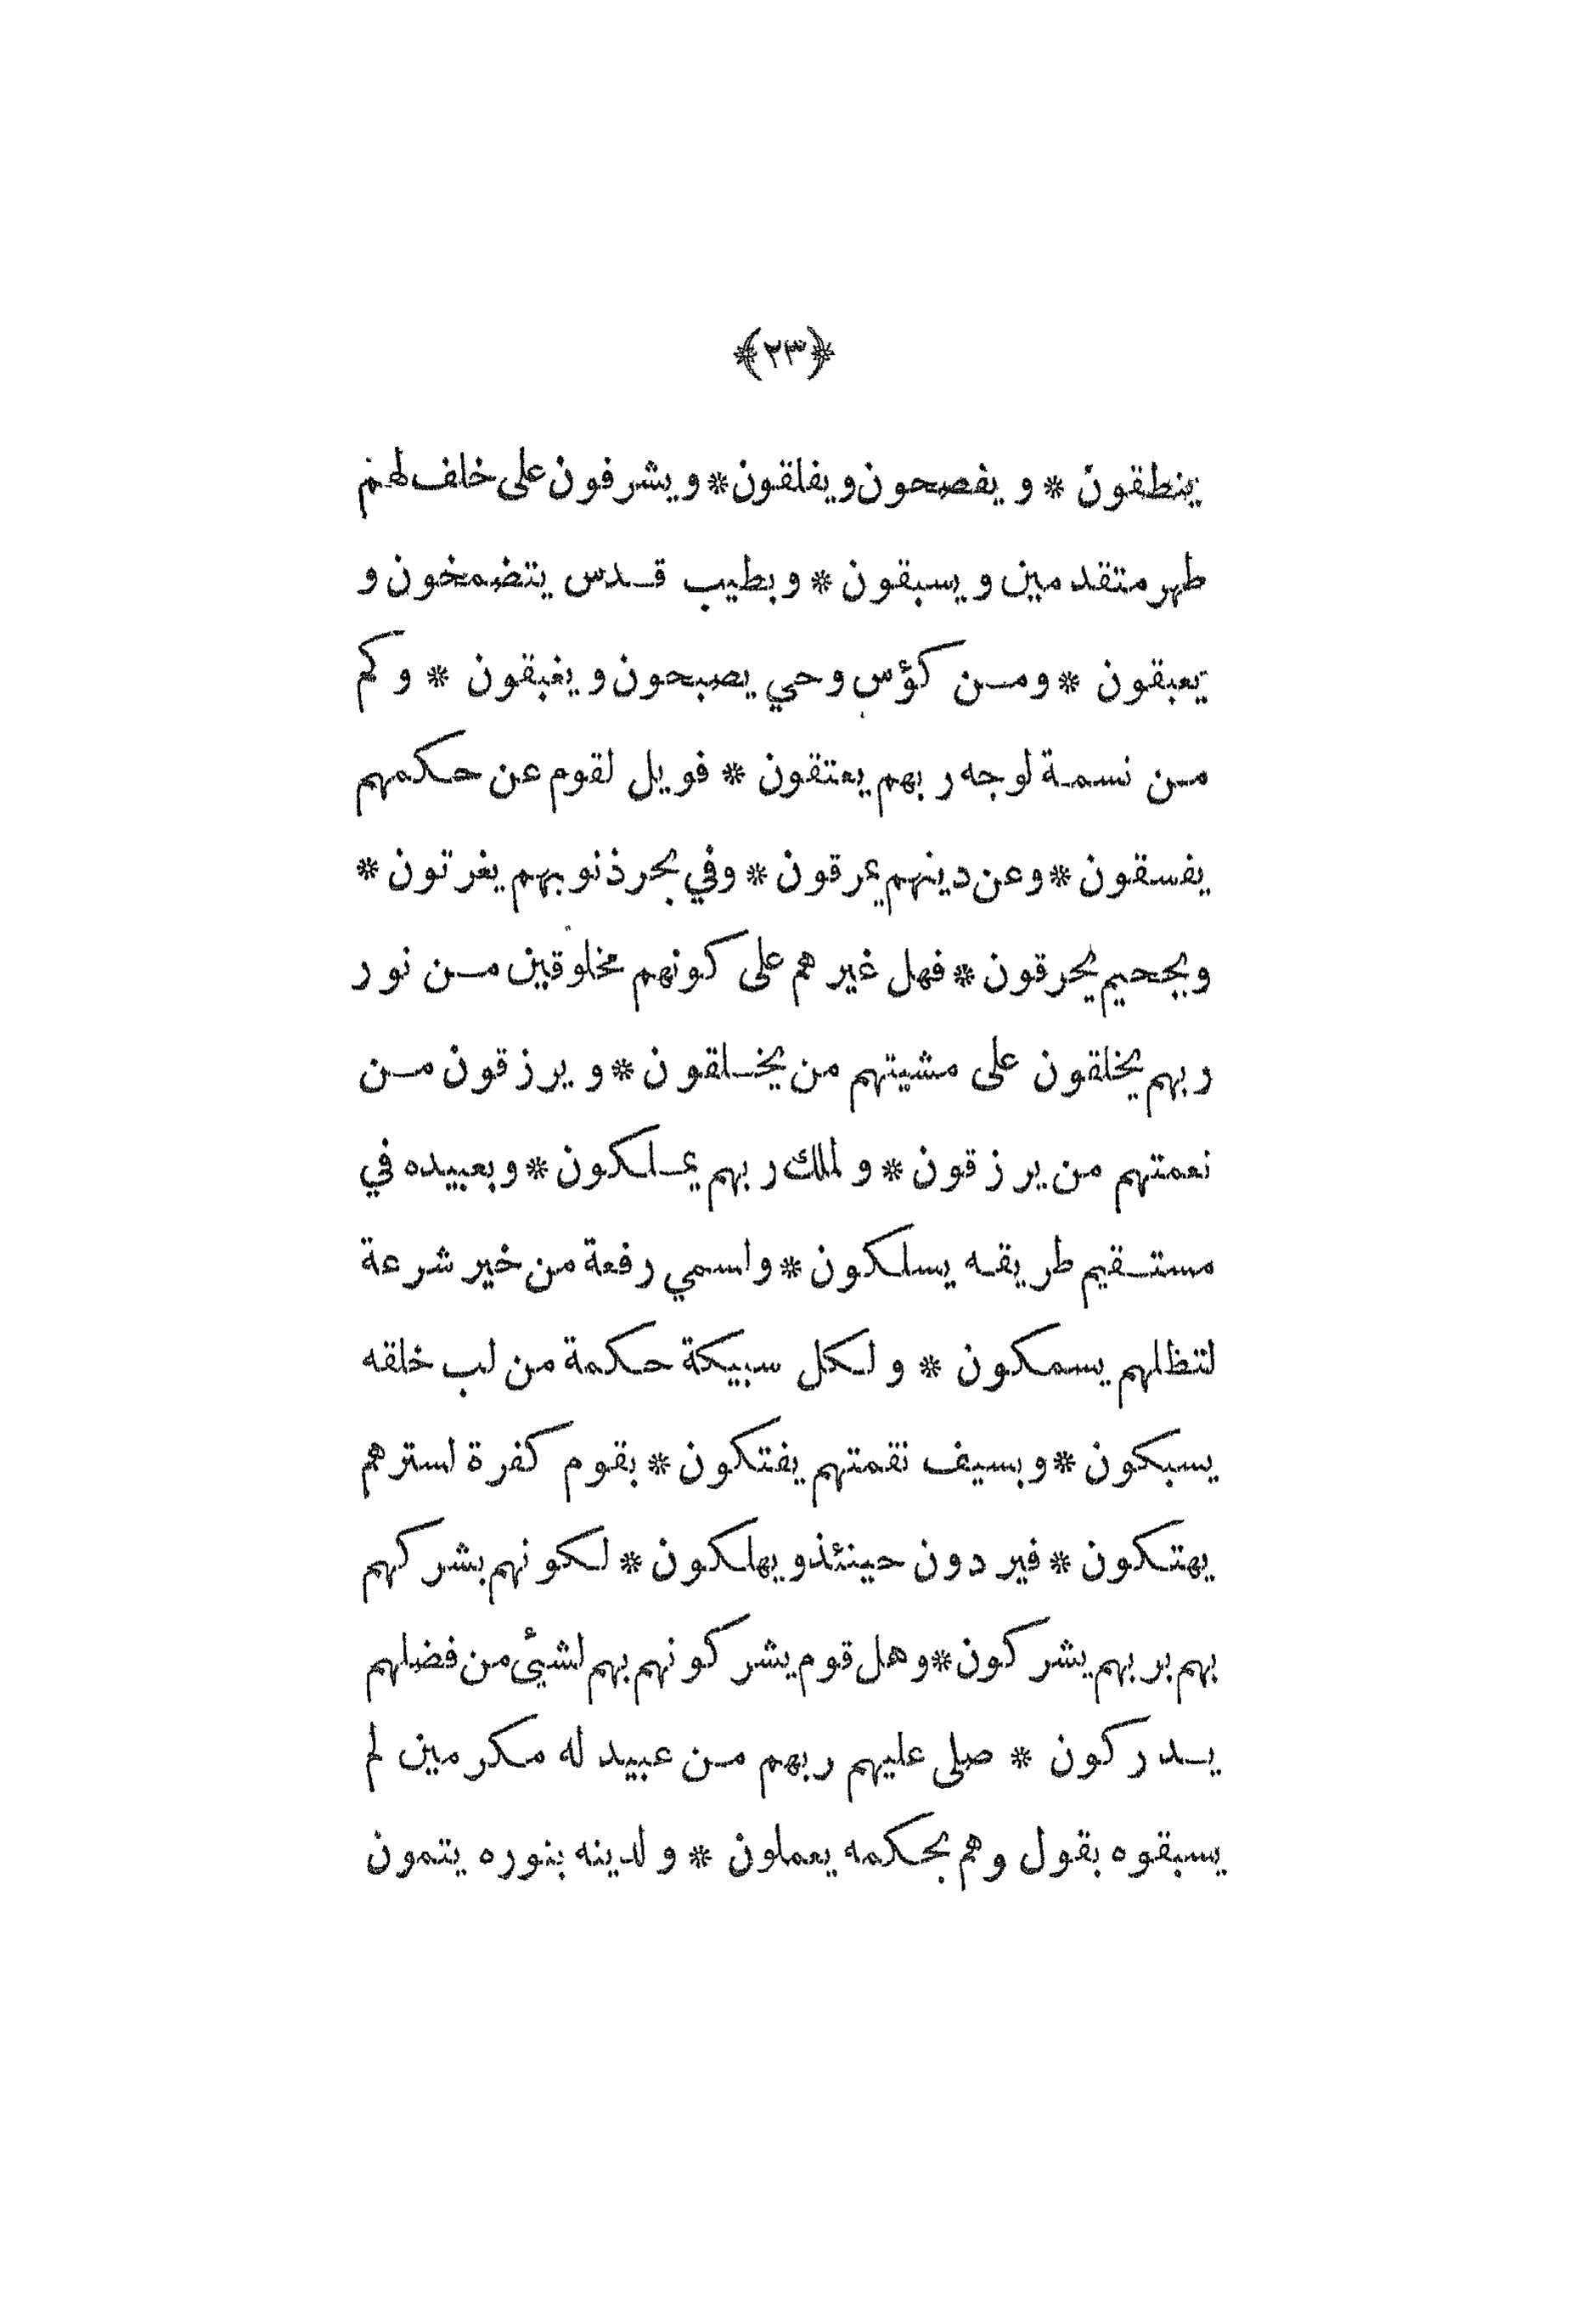 ﴿٢٣﴾
ينطقون * و يفصحون ويفلقون * ويشرفون على خلف لهم
طهر متقدمين ويسبقون * وبطيب قدس يتضمخون و
يعبقون * ومن كؤس وحي يصبحون ويغبقون * وكم
من نسمة لوجه ربهم يعتقون * فويل لقوم عن حكمهم
يفسقون * وعن دينهم يمرقون * وفي بحر ذنوبهم يغرتون *
وبجحيم يحرقون * فهل غيرهم على كونهم مخلوقين من نور
ربهم يخلقون على مشيتهم من يخلقون * ويرزقون من
نعمتهم من يرزقون * ولملك ربهم يملكون * وبعبيده في
مستقيم طريقه يسلكون * واسمي رفعة من خير شرعة
لتظلهم يسمكون * ولكل سبيكة حكمة من لب خلقه
يسبكون * وبسيف نقمتهم يفتكون * بقوم كفرة استرهم
يهتكون * فيردون حينئذ ويهلكون * لكونهم بشركهم
بهم بربهم يشركون * وهل قوم يشركونهم بهم لشيئ من فضلهم
يدركون * صلى عليهم ربهم من عبيد له مكرمين لم
يسبقوه بقول وهم بحكمه يعملون * ولدينه بنوره يتمون